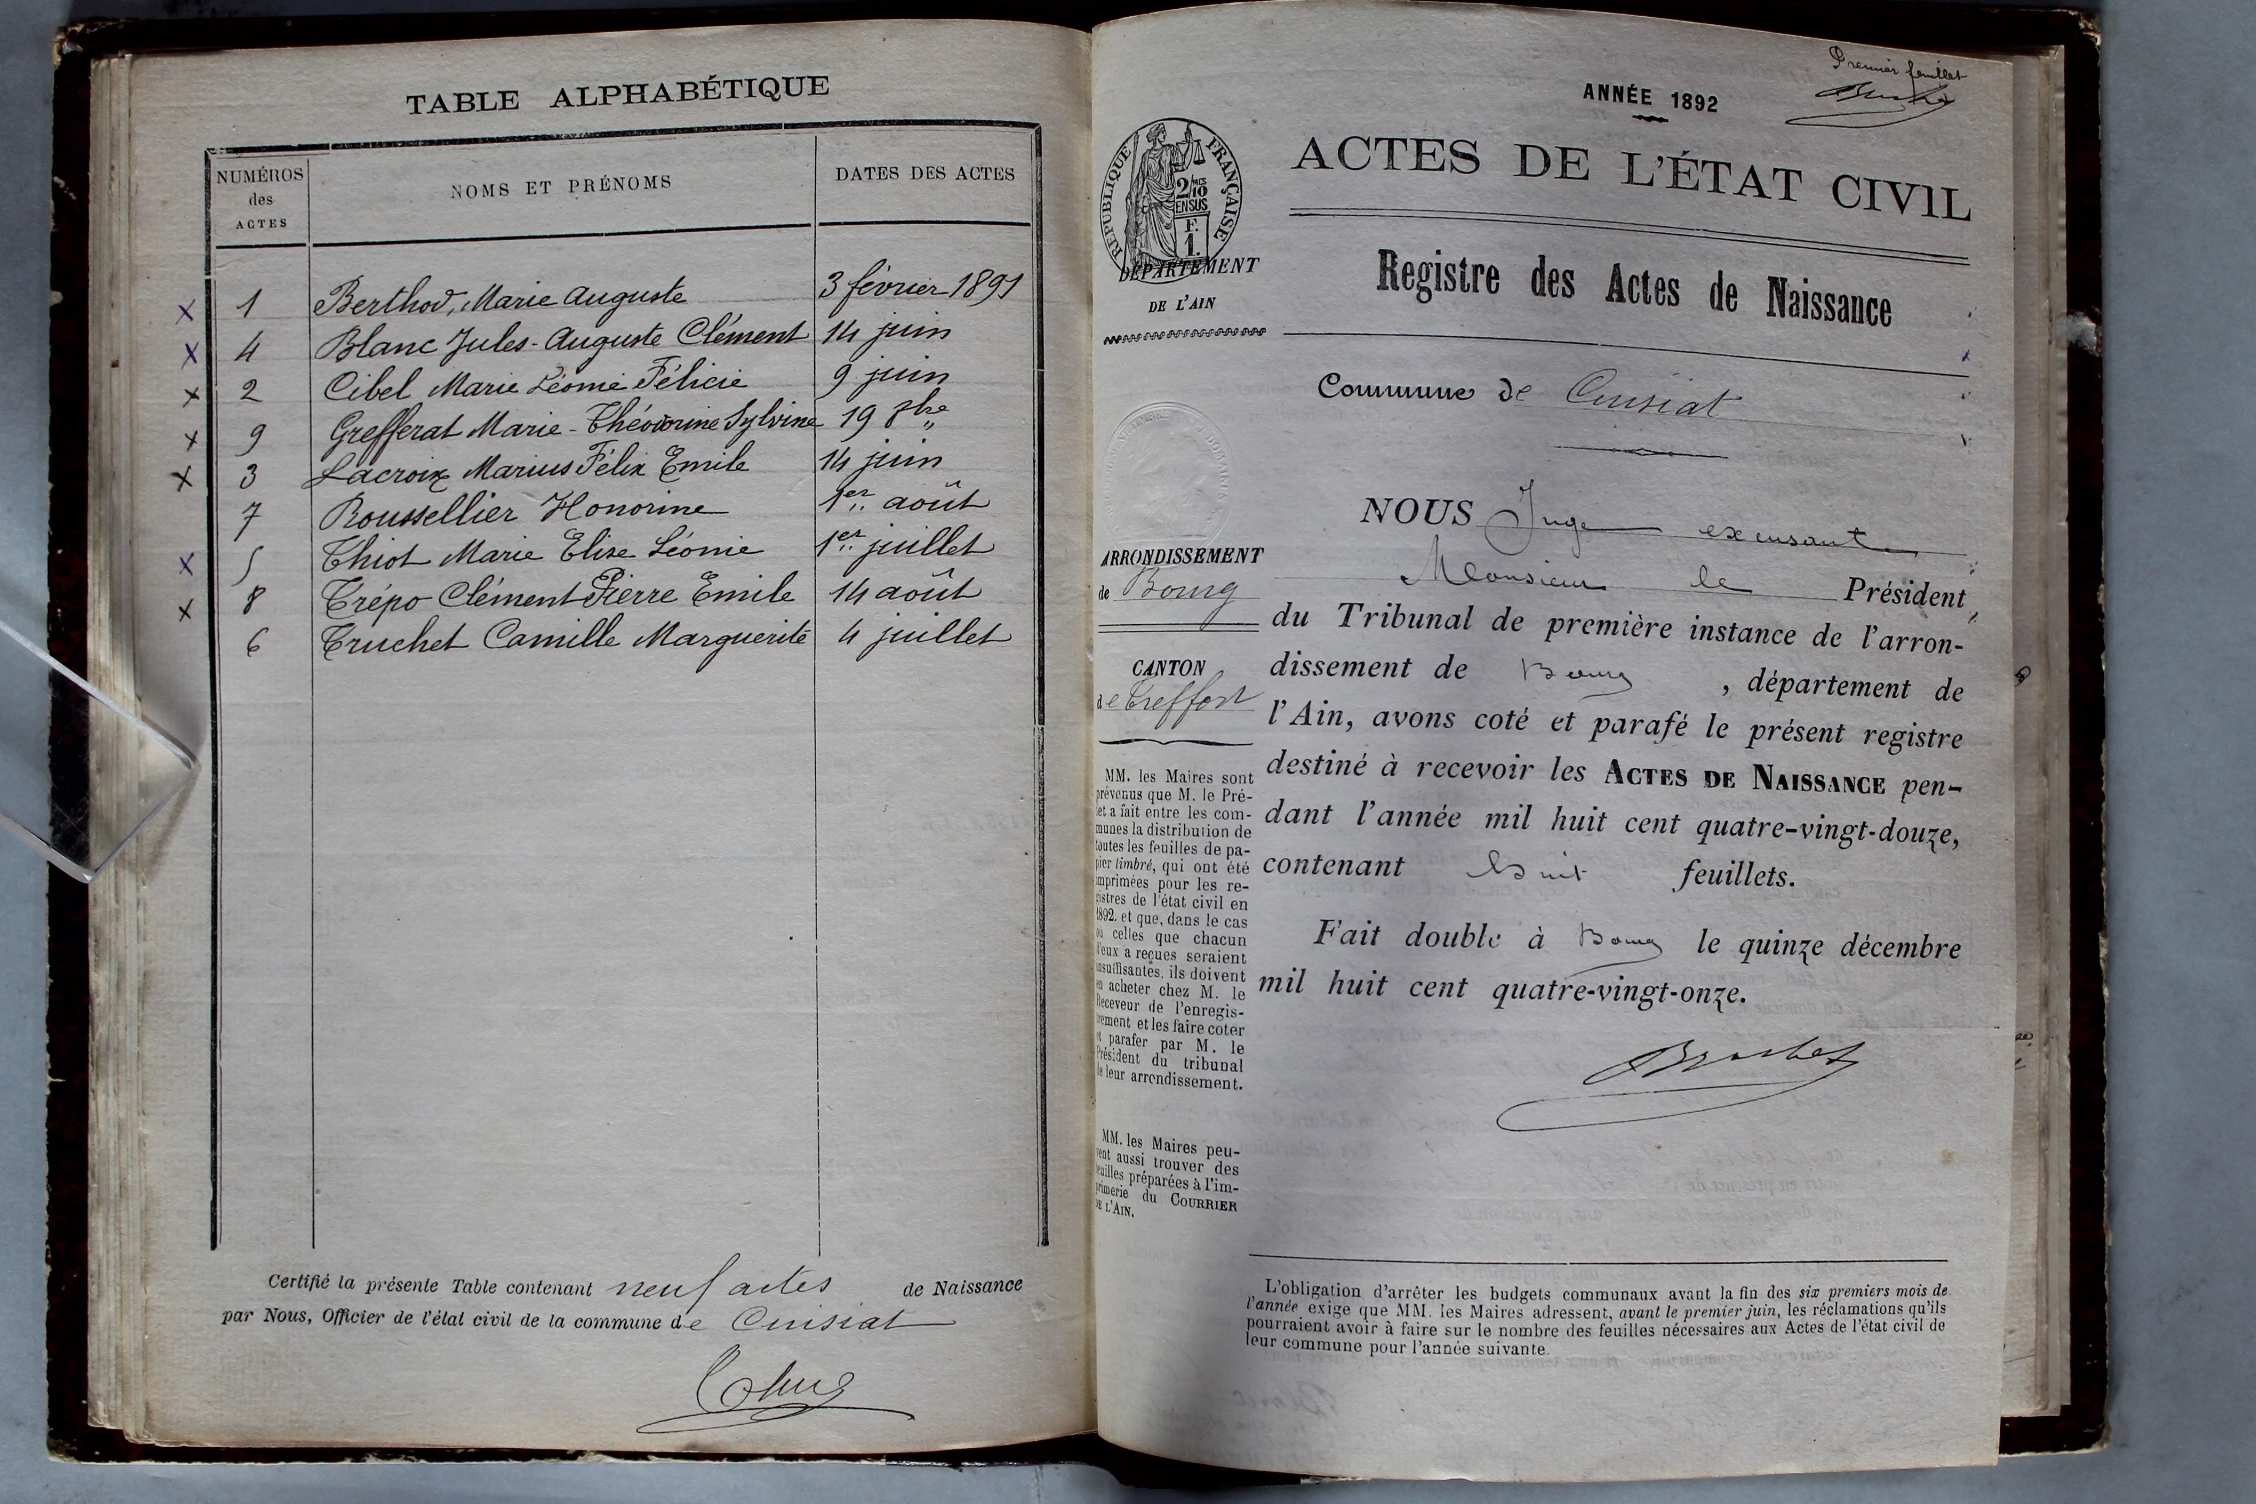 TABLE ALPHABÉTIQUE
NUMÉROS des ACTES
NOMS ET PRÉNOMS
DATES DES ACTES
1 Berthod, Marie Auguste 3 février 1891
4 Blanc Jules-Auguste Clément 14 juin
2 Cibel Marie Léonie Félicie 9 juin
9 Grefferat Marie-Théodorine Sylvine 19 8bre "
3 Lacroix Marius Félix Emile 14 juin
7 Roussellier Honorine 1er août
5 Thiot Marie Elise Léonie 1er juillet
8 Trépo Clément Pierre Emile 14 août
6 Truchet Camille Marguerite 4 juillet
Certifié la présente Table contenant neuf actes de Naissance
par Nous, Officier de l'état civil de la commune de Cuisiat
Premier feuillet
ANNÉE 1892
ACTES DE L'ÉTAT CIVIL
RÉPUBLIQUE FRANÇAISE
2/10 EN SUS
F. 1.
DÉPARTEMENT
DE L'AIN
Registre des Actes de Naissance
Commune de Cuisiat
ARRONDISSEMENT
de Bourg
CANTON
de Treffort
MM. les Maires sont
prévenus que M. le Pré-
fet a fait entre les com-
munes la distribution de
toutes les feuilles de pa-
pier timbré, qui ont été
imprimées pour les re-
gistres de l'état civil en
1892, et que, dans le cas
où celles que chacun
d'eux a reçues seraient
insuffisantes, ils doivent
en acheter chez M. le
Receveur de l'enregis-
trement et les faire coter
et parafer par M. le
Président du tribunal
de leur arrondissement.
MM. les Maires peu-
vent aussi trouver des
feuilles préparées à l'im-
primerie du COURRIER
DE L'AIN.
NOUS Juge excusant
Monsieur le Président
du Tribunal de première instance de l'arron-
dissement de Bourg, département de
l'Ain, avons coté et parafé le présent registre
destiné à recevoir les ACTES DE NAISSANCE pen-
dant l'année mil huit cent quatre-vingt-douze,
contenant huit feuillets.
Fait double à Bourg le quinze décembre
mil huit cent quatre-vingt-onze.
L'obligation d'arrêter les budgets communaux avant la fin des six premiers mois de
l'année exige que MM. les Maires adressent, avant le premier juin, les réclamations qu'ils
pourraient avoir à faire sur le nombre des feuilles nécessaires aux Actes de l'état civil de
leur commune pour l'année suivante.